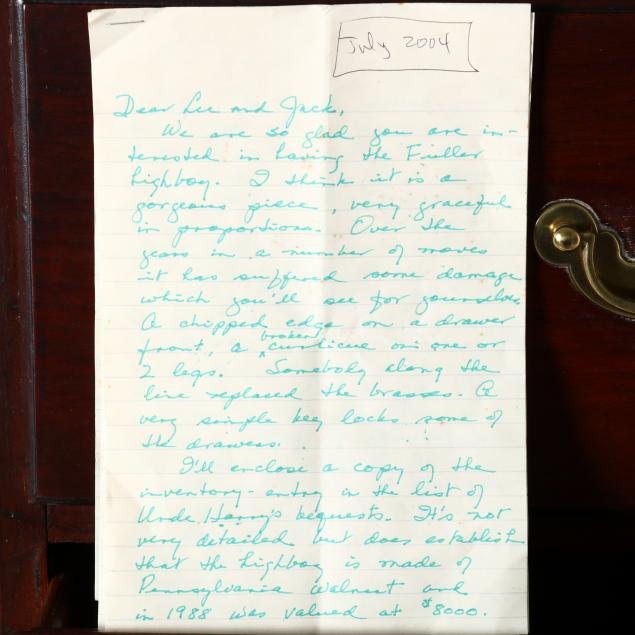 July 2004
Dear Lee and Jack,
We are so glad you are in-
terested in having the Fuller
highboy. I think it is a
gorgeous piece, very graceful
in proportions. Over the
years in a number of moves
it has suffered some damage
which you'll see for yourselves
A chipped edge on a drawer
front, a broken curlicue on one or
2 legs. Somebody along the
line replaced the brasses. A
very simple key locks some of
the drawers.
I'll enclose a copy of the
inventory-entry in the list of
Uncle Harry's bequests. It's not
very detailed but does establish
that the highboy is made of
Pennsylvania Walnut and
in 1988 was valued at $8000.